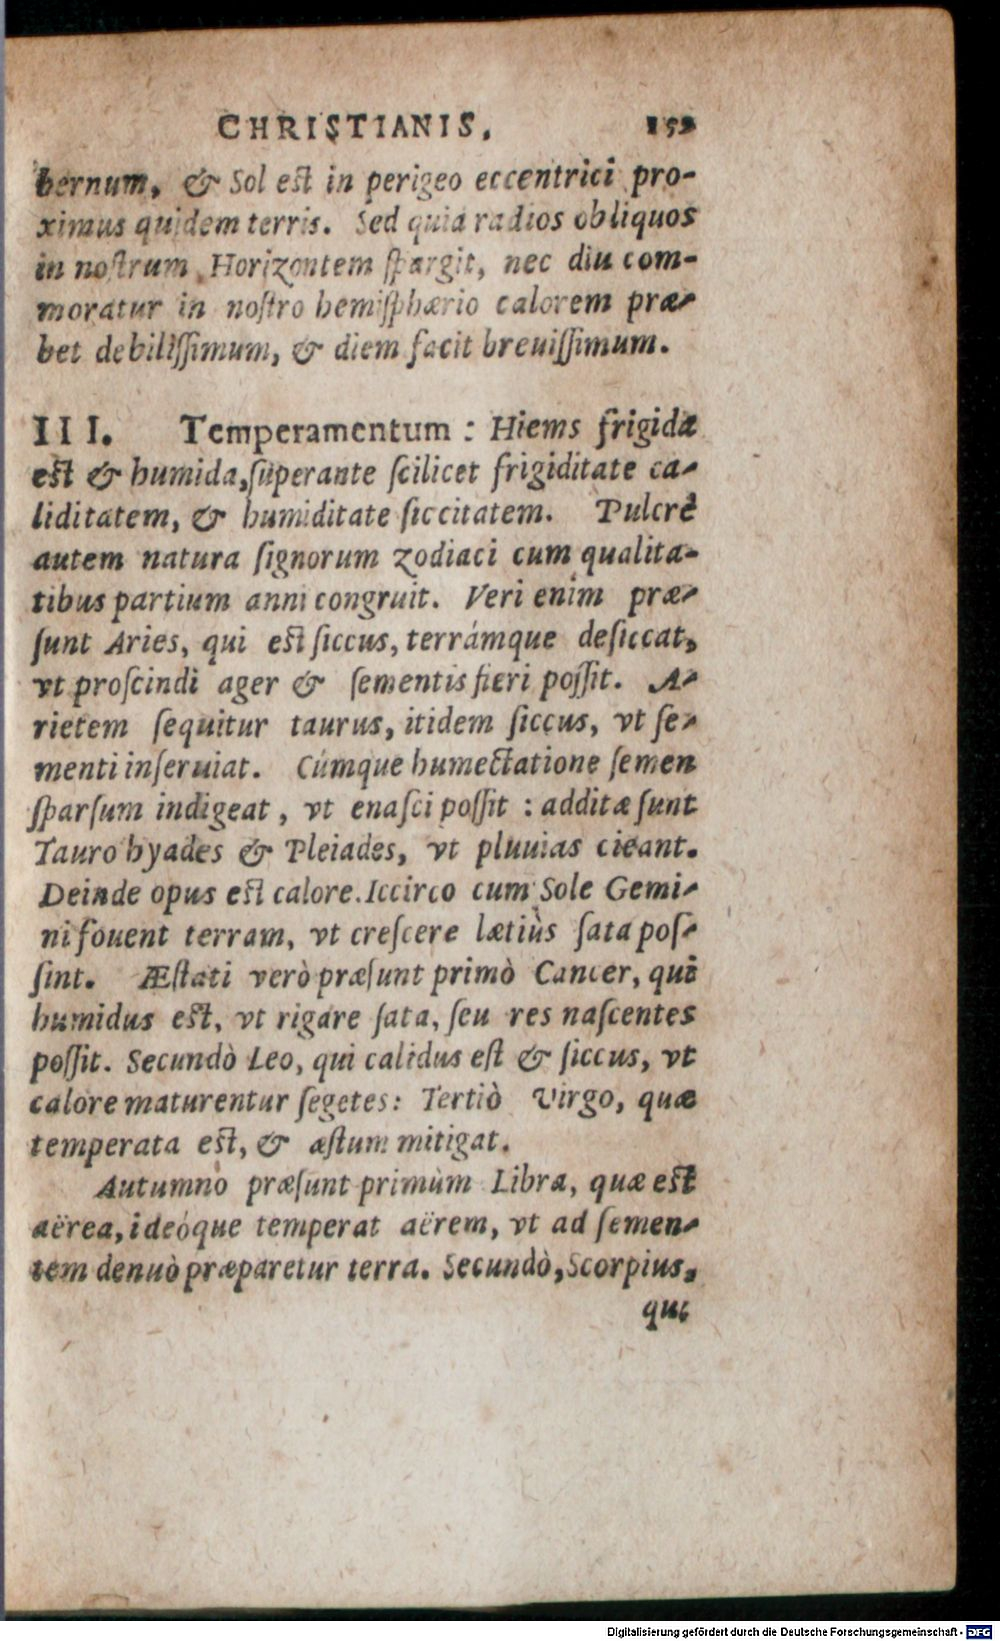 CHRISTIANIS. 159
bernum, & Sol est in perigeo eccentrici pro-
ximus quidem terris. Sed quia radios obliquos
in noſtrum Horizontem ſpargit, nec diu com-
moratur in noſtro hemiſphærio calorem præ-
bet debiliſſimum, & diem facit breuiſſimum.
III. Temperamentum : Hiems frigida
est & humida, ſuperante ſcilicet frigiditate ca-
liditatem, & humiditate ſiccitatem. Pulcrè
autem natura ſignorum zodiaci cum qualita-
tibus partium anni congruit. Veri enim præ-
ſunt Aries, qui est ſiccus, terrámque deſiccat,
vt proſcindi ager & ſementis fieri poſſit. A-
rietem ſequitur taurus, itidem ſiccus, vt ſe-
menti inſeruiat. Cúmque humectatione ſemen
ſparſum indigeat, vt enaſci poſſit : additæ ſunt
Tauro hyades & Pleiades, vt pluuias cieant.
Deinde opus est calore. Iccirco cum Sole Gemi-
ni fouent terram, vt creſcere lætiùs ſata poſ-
ſint. Æſtati verò præſunt primò Cancer, qui
humidus est, vt rigare ſata, ſeu res naſcentes
poſſit. Secundò Leo, qui calidus eſt & ſiccus, vt
calore maturentur ſegetes: Tertiò Virgo, quæ
temperata est, & æſtum mitigat.
Autumno præſunt primùm Libra, quæ est
aërea, ideóque temperat aërem, vt ad ſemen-
tem denuò præparetur terra. Secundò, Scorpius,
qui
Digitalisierung gefördert durch die Deutsche Forschungsgemeinschaft - DFG